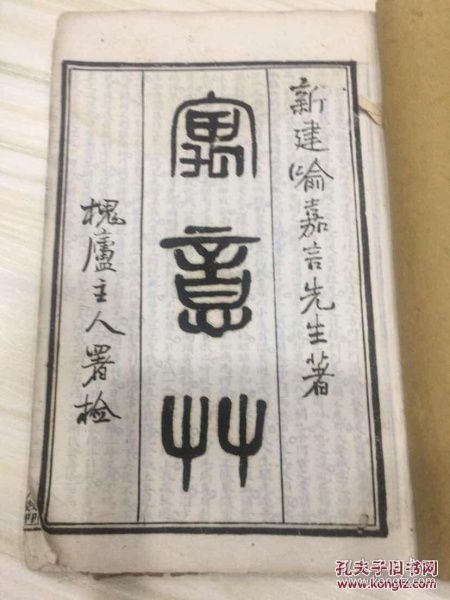 新建喻嘉言先生著
寓意艸
槐廬主人署检
孔夫子旧书网
www.kongfz.com